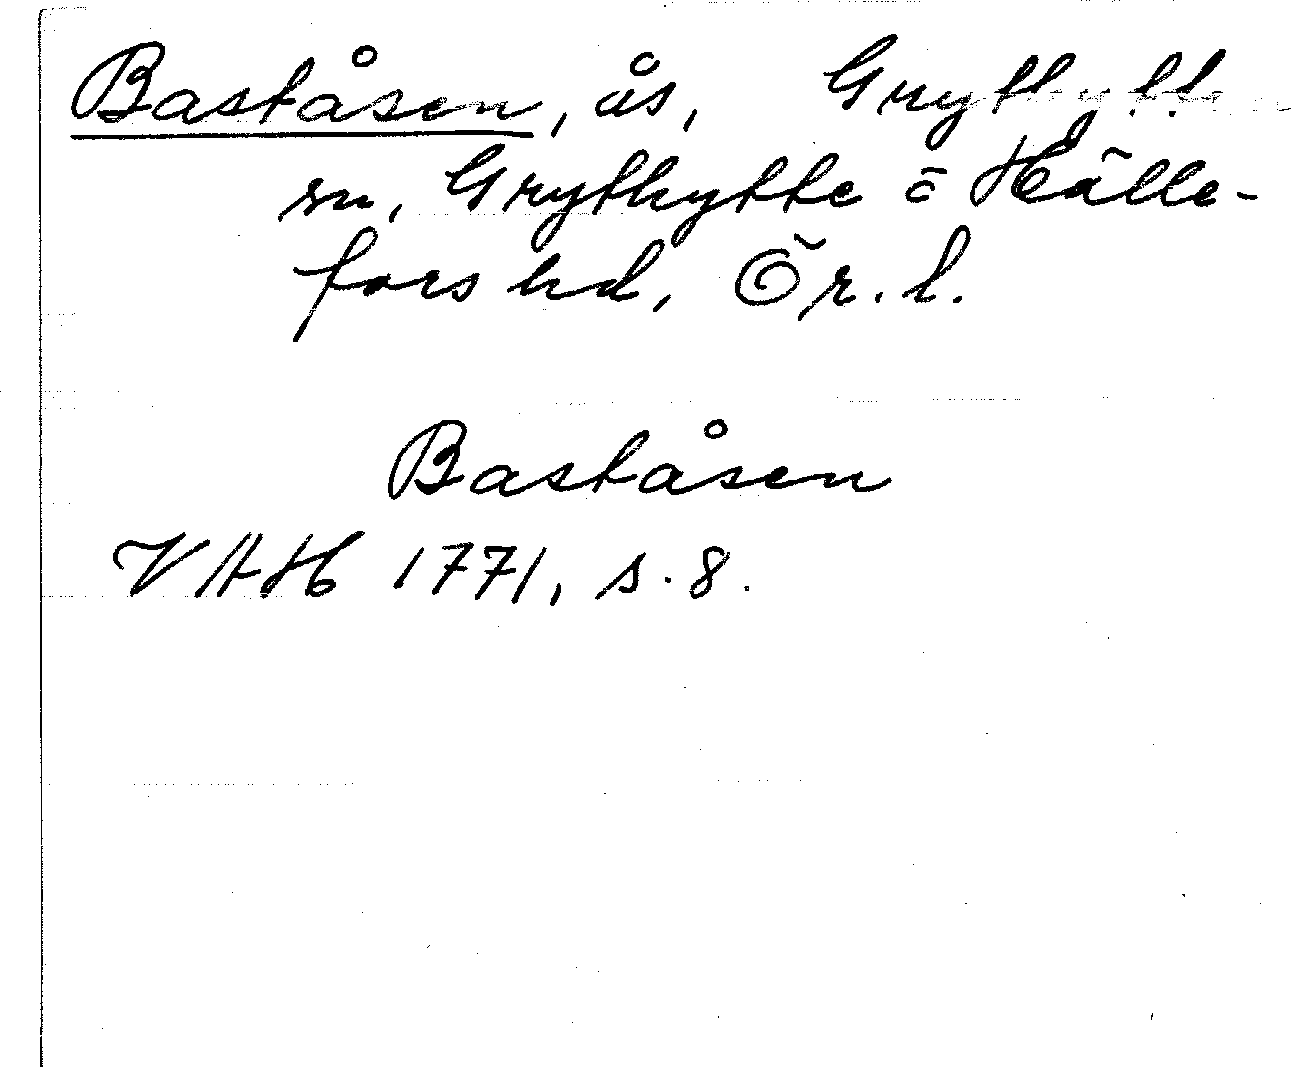 Baståsen, ås, Grythytte
sn, Grythytte o Hälle-
fors hd, Ör. l.
Baståsen
VAH 1771, s. 8.